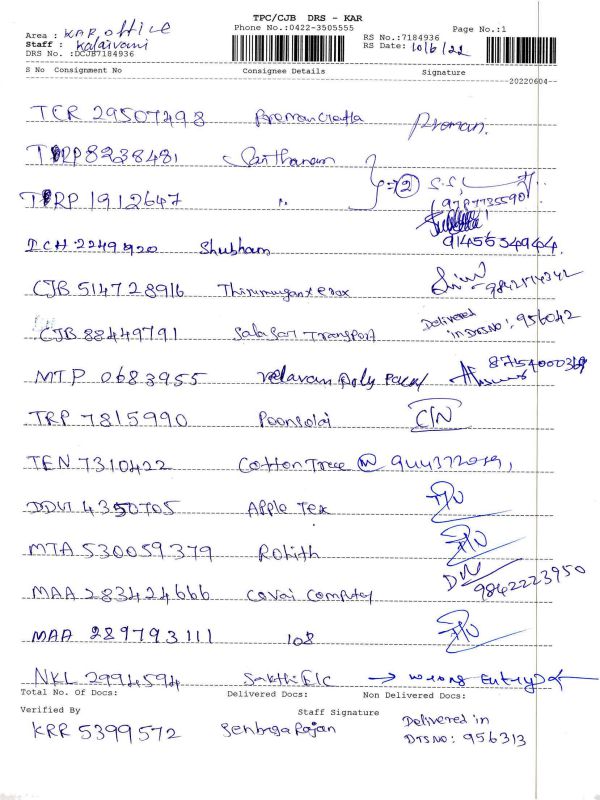 TPC/CJB DRS - KAR
Phone No.:0422-3505555
Page No.:1
Area : KAR office
Staff : Kalaivani
DRS No. :DCJB7184936
RS No.:7184936
RS Date: 10/6/22
S No Consignment No Consignee Details Signature
20220604
TCR 29507498 Proman
TRP 8238481 Santhanam
} = (2) S.S,
9787735590
TRP 1912647 "
2249920 Shubham 9145634944
CJB 514728916
CJB 88449791 Salasar Transport Delivered in DRS No: 956042
MTP 0683955 Velavan Poly Pack 8754000369
TRP 7815990 Poonsolai C/N
TEN 7310422 Cotton Tree
4350705 Apple Tex
MTA 530059379 Rohith
MAA 283424666 Covai Computer 9842223950
MAA 289793111 108
NKL 2994594 Sakthi Elc → wrong Entry ←
Total No. Of Docs: Delivered Docs: Non Delivered Docs:
Verified By Staff Signature
KRR 5399572 Senbaga Rajan Delivered in
DTS No: 956313